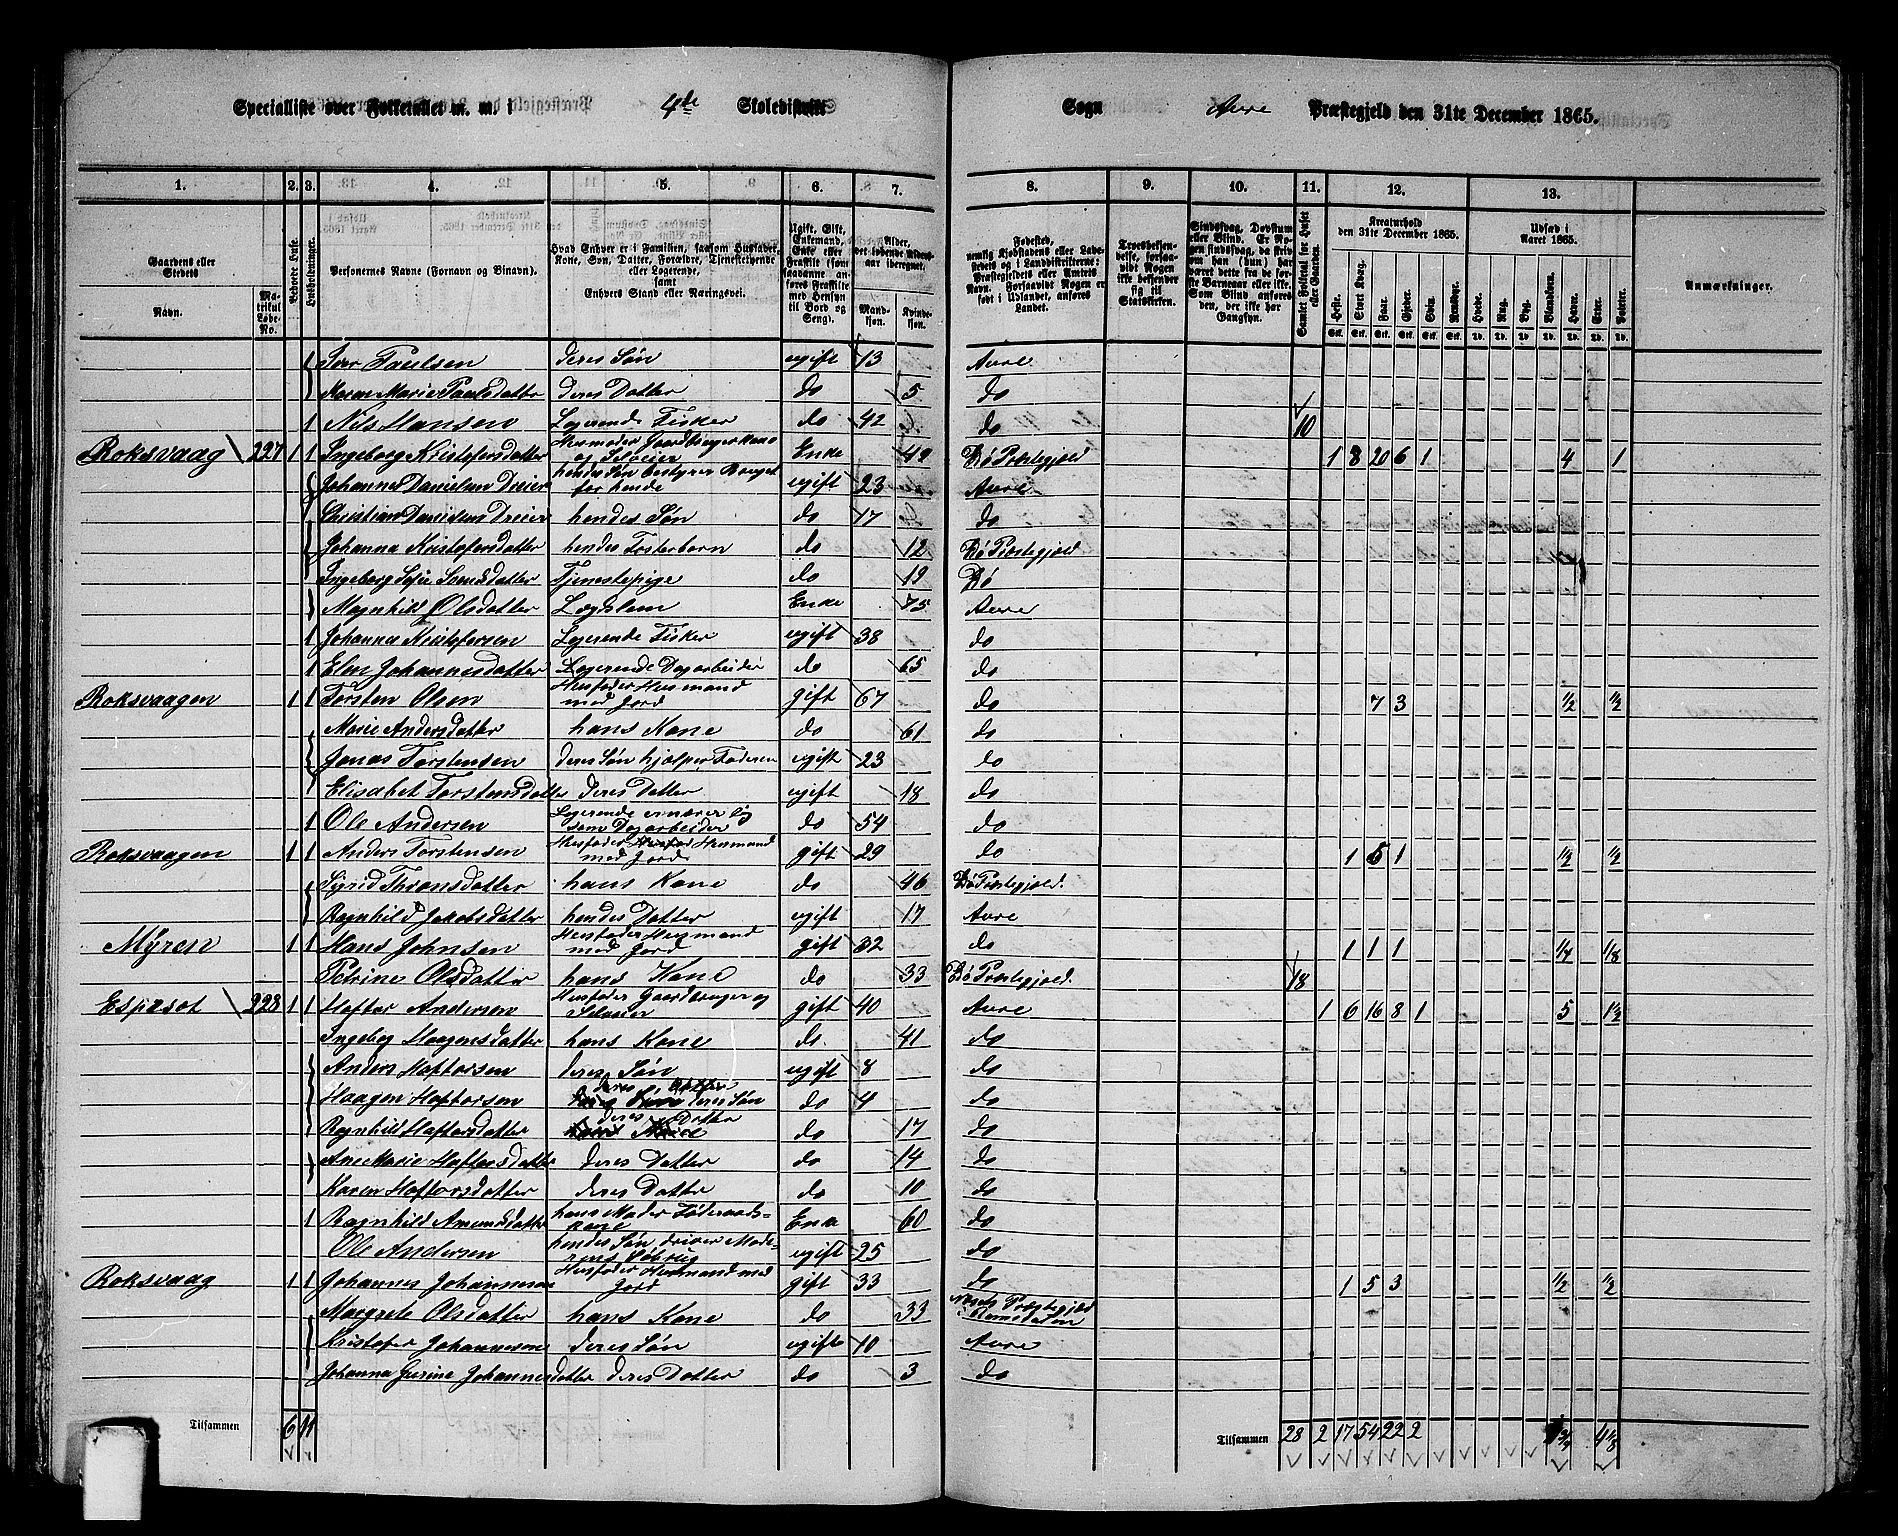 Specialliste over Folketallet m. m. i 4de Skoledistrikt Sogn Aure Præstegjeld den 31te December 1865.
1. 2. 3. 4. 5. 6. 7. 8. 9. 10. 11. 12. 13.
Gaardens eller Stedets Navn. Matrikul Løbe-No. Beboede Huse. Husholdninger. Personernes Navne (Fornavn og Binavn). Hvad Enhver er i Familien, saasom Husfader, Kone, Søn, Datter, Forældre, Tjenestetyende eller Logerende, samt Enhvers Stand eller Næringsvei. Ugift, Gift, Enkemand, Enke eller Fraskilt (som saadanne anføres Fraskilte med Hensyn til Bord og Seng). Alder, det løbende Aldersaar iberegnet. Mandkjøn. Kvindekjøn.
Fødested, nemlig Kjøbstadens eller Ladestedets og i Landdistrikterne: Præstegjeldets eller Amtets Navn. Forsaavidt Nogen er født i Udlandet, anføres Landet. Troesbekjendelse, forsaavidt Nogen ikke bekjender sig til Statskirken. Sindssvag, Døvstum eller Blind. Samlet Folketal for Huset eller Gaarden. Kreaturhold den 31te December 1865. Udsæd i Aaret 1865. Anmærkninger.
Heste. Stort Kvæg. Faar. Gjeder. Sviin. Rensdyr. Hvede. Rug. Byg. Blandkorn. Havre. Erter. Poteter.
1 Iver Paulsen deres Søn ugift 13 Aure
Maren Marie Paulsdatter deres Datter do 5 do
1 Nils Hansen Logerende Fisker do 42 do 10
Roksvaag 227 1 1 Ingeborg Kristofersdatter Husmoder Gaardbrugerkone og Selveier Enke 49 Bø Præstegjeld 1 8 20 6 1 4 1
Johannes Danielsen Dreier hendes Søn bestyrer Bruget for hende ugift 23 Aure
Christian Danielsen Dreier hendes Søn do 17 do
Johanna Kristofersdatter hendes Fosterbarn do 12 Bø Præstegjeld
Ingeborg Sofie Svendsdatter Tjenestepige do 19 Bø
Magnhild Olsdatter Lægdslem Enke 75 Aure
1 Johannes Kristofersen Logerende Fisker ugift 38 do
1 Elen Johannesdatter Logerende Dagarbeider do 65 do
Roksvaagen 1 1 Torsten Olsen Husfader Husmand med Jord gift 67 do 7 3 1/2 1/2
Marie Andersdatter hans Kone do 61 do
Jonas Torstensen deres Søn hjælper Faderen ugift 23 do
Elisabet Torstensdatter deres Datter ugift 18 do
1 Ole Andersen Logerende ernærer sig som Dagarbeider do 54 do
Roksvaagen 1 1 Anders Torstensen Husfader Husmand med Jord gift 29 do 1 5 1 1/2 1/2
Sigrid Thronsdatter hans Kone do 46 Bø Præstegjeld.
Ragnhild Jakobsdatter hendes Datter ugift 17 Aure
Myren 1 1 Hans Johnsen Husfader Husmand med Jord gift 32 do 1 1 1 1/4 1/8
Petrine Olsdatter hans Kone do 33 Bø Præstegjeld. 18
Espesot 228 1 1 Hafter Andersen Husfader Gaardbruger og Selveier gift 40 Aure 1 6 16 8 1 5 1 1/2
Ingebog Haagensdatter hans Kone do 41 do
Anders Haftorsen deres Søn ugift 8 do
Haagen Haftorsen deres Søn do 4 do
Ragnhild Haftorsdatter deres Datter do 17 do
Ane Marie Haftorsdatter deres Datter do 14 do
Karen Haftorsdatter deres Datter do 10 do
1 Ragnhild Amundsdatter hans Moder Føderaadskone Enke 60 do
Ole Andersen hendes Søn driver Moderens ugift 25 do
Roksvaag 1 1 Johannes Johannesen Husfader Husmand med Jord gift 33 do 1 5 3 1/2 1/2
Margrete Olsdatter hans Kone do 33 Præstegjeld i Romsdalen
Kristofer Johannesen deres Søn ugift 10 Aure
Johanna Gurine Johannesdatter deres Datter do 3 do
Tilsammen 6 11 Tilsammen 28 2 17 54 22 2 4 1/8